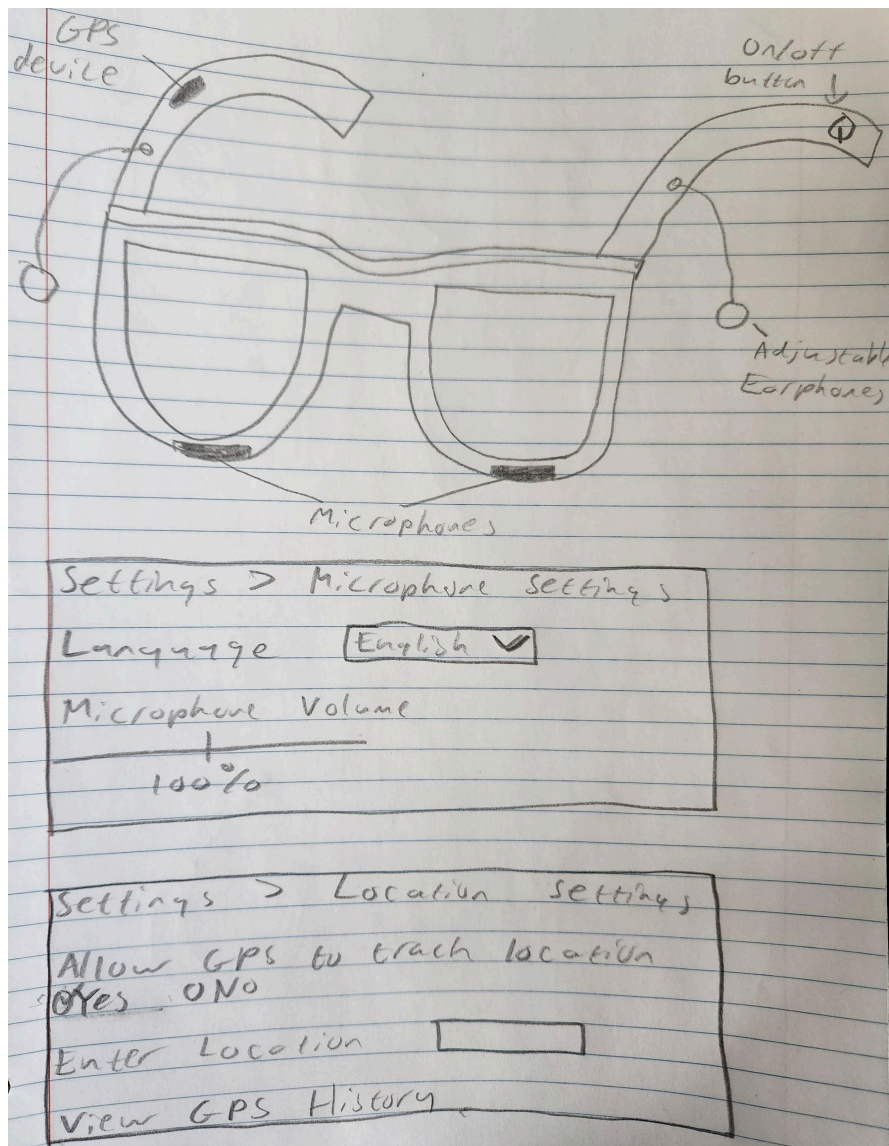 GPS
device
On/off
button
Adjustable
Earphones
Microphones
Settings > Microphone settings
Language English
Microphone Volume
100%
Settings > Location settings
Allow GPS to track location
Yes No
Enter Location
View GPS History